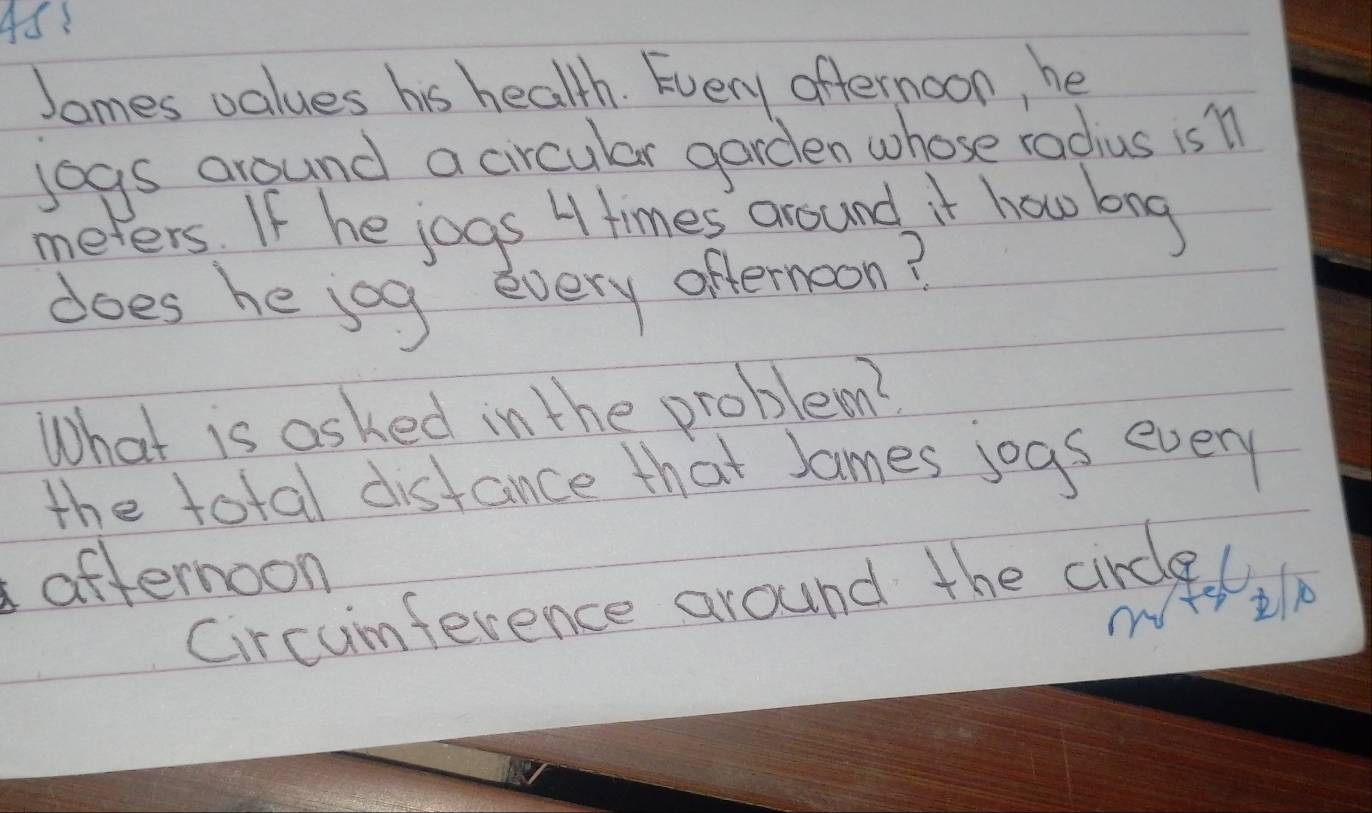 James values his health. Every afternoon, he
jogs around a circular garden whose radius is 11
meters. If he jogs 4 times around it how long
does he jog every afternoon?
What is asked in the problem?
the total distance that James jogs every
afternoon
Circumference around the circle